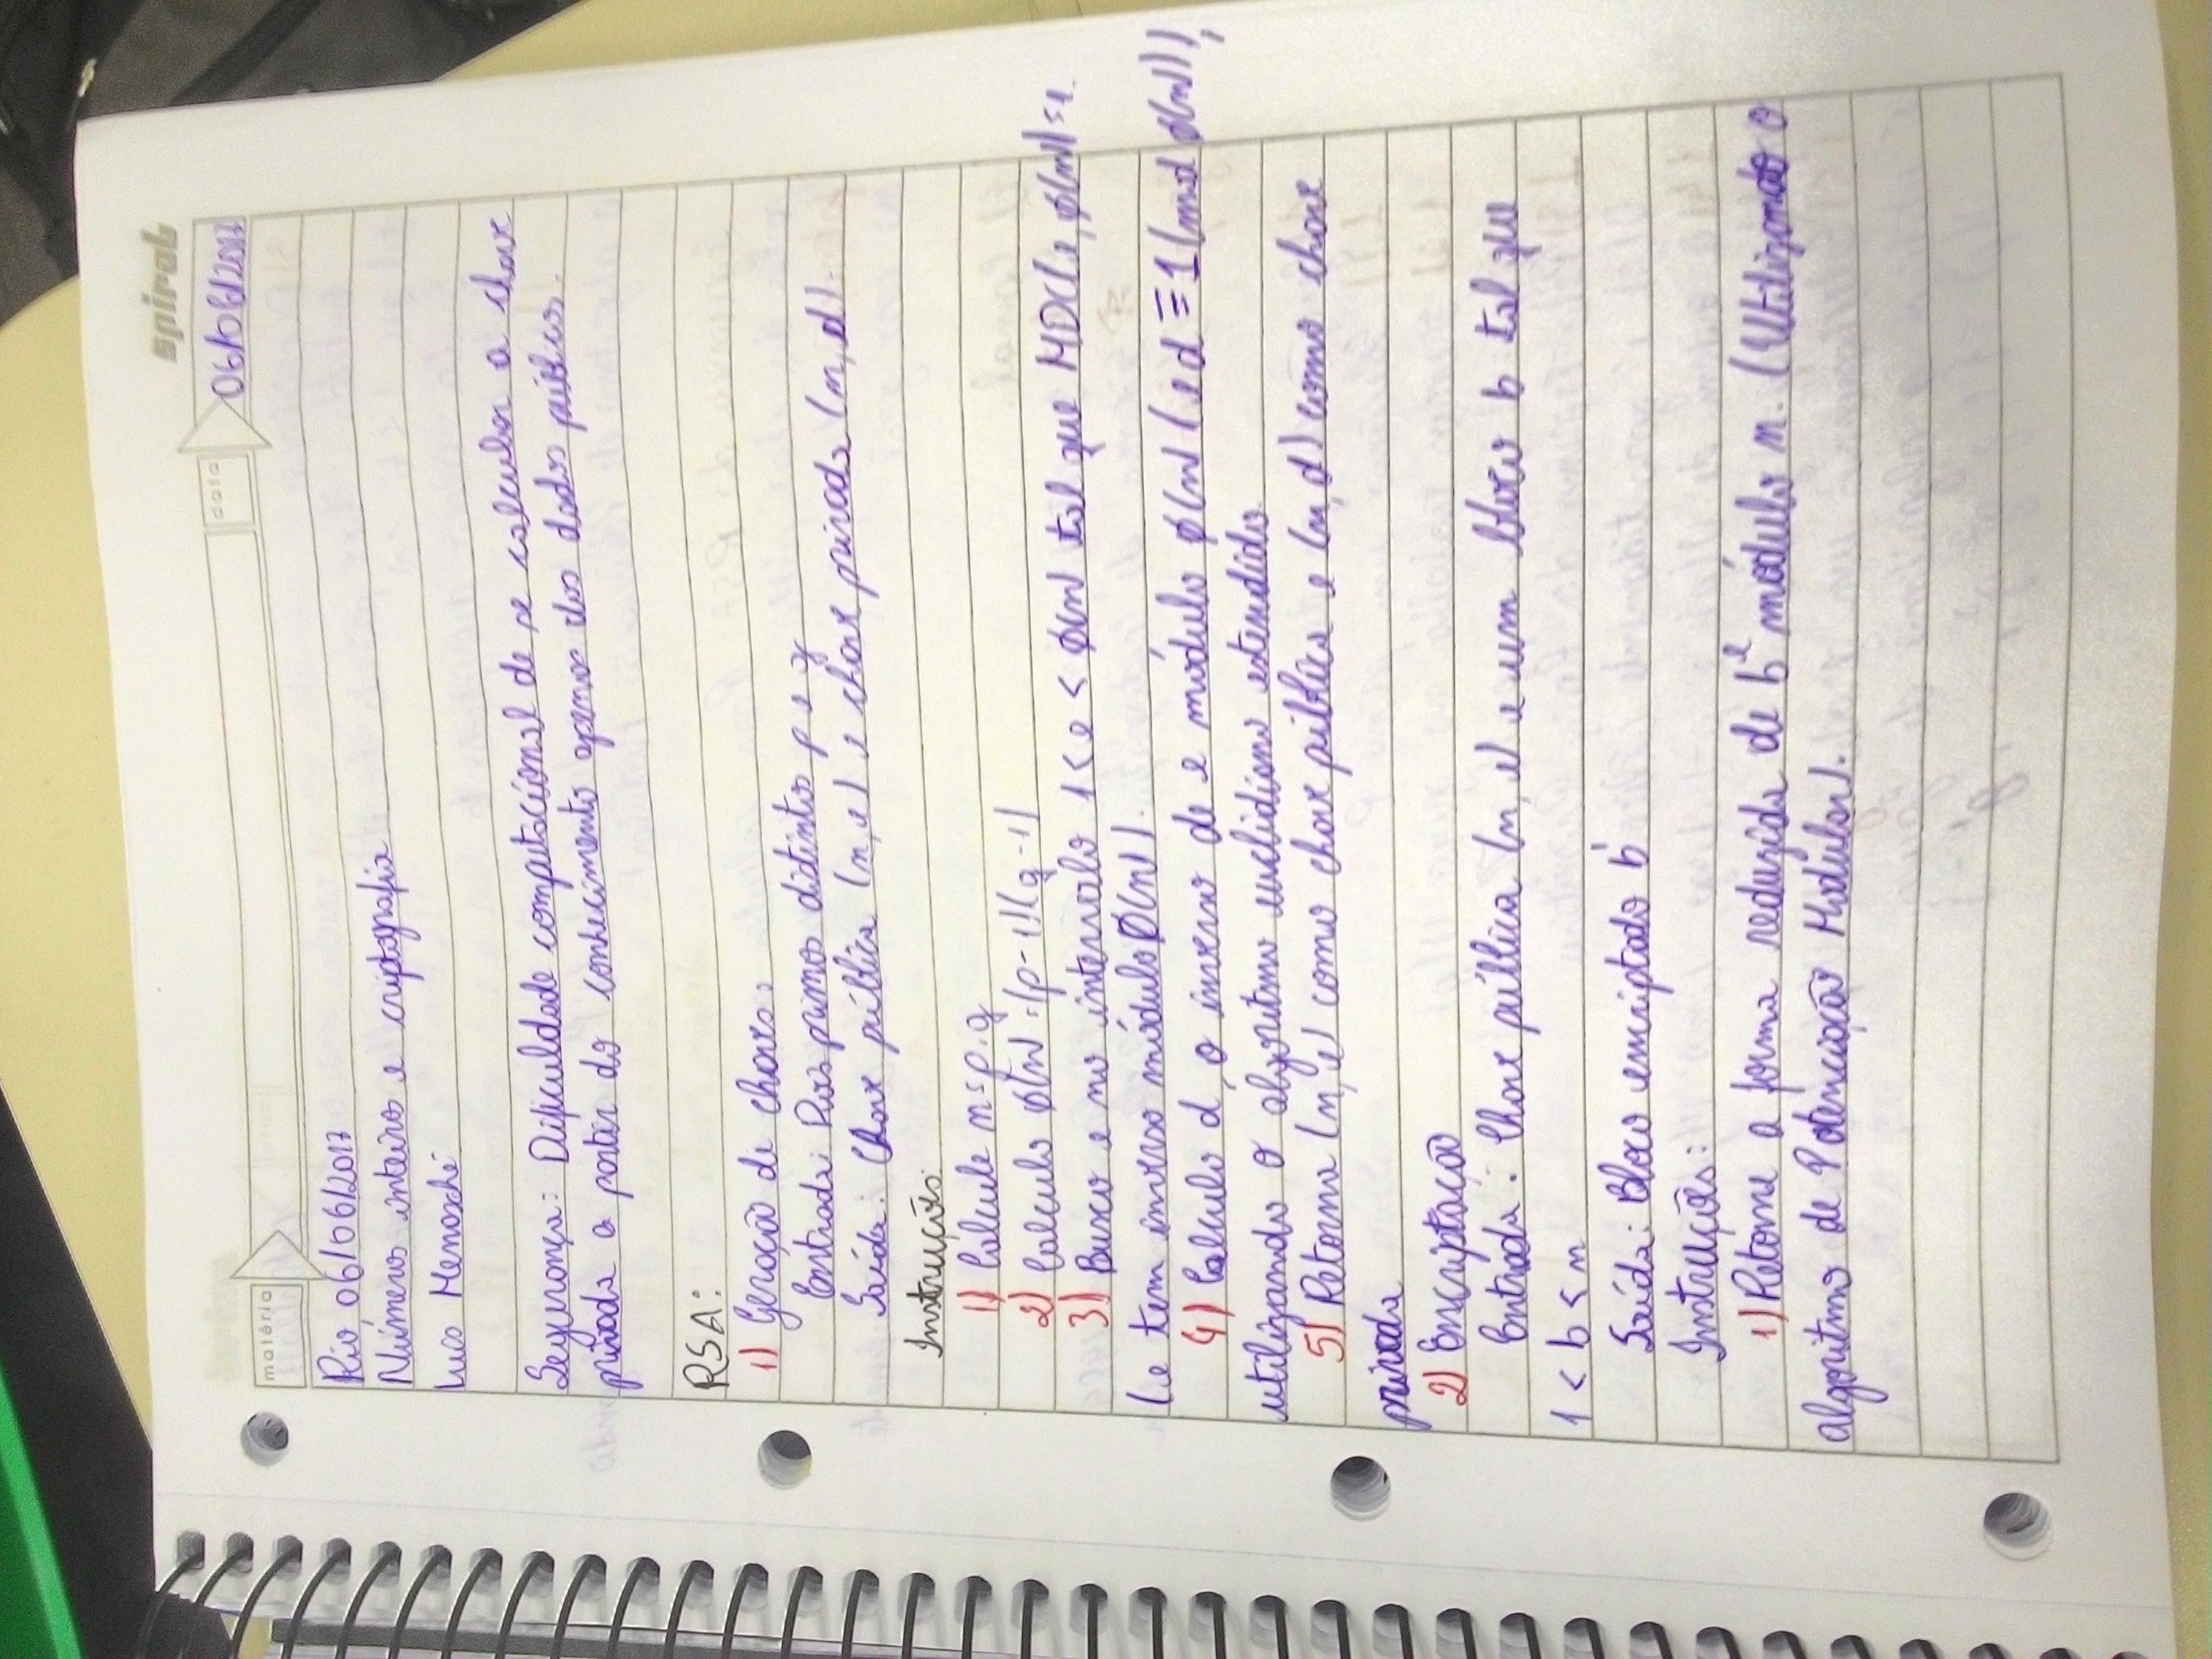 spiral
matéria
data
06/06/2017
Rio, 06/06/2017
Números inteiros e criptografia
Menasché
Segurança: Dificuldade computacional de se calcular a chave
privada a partir do conhecimento apenas dos dados públicos.
RSA:
1) Geração de chaves:
Entrada: Dois primos distintos p e q
Saída: Chave pública (n, e) e chave privada (n, d).
Instruções:
1) Calcule n = p.q
2) Calculo φ(n) = (p-1)(q-1)
3) Busco e no intervalo 1 < e < φ(n) tal que MDC(e, φ(n)) = 1.
(e tem inverso módulo φ(n)).
4) Calculo d, o inverso de e módulo φ(n) (ed ≡ 1 (mod φ(n))),
utilizando o algoritmo euclidiano estendido.
5) Retorna (n, e) como chave pública e (n, d) como chave
privada
2) Encriptação
Entrada: Chave pública (n, e) e um bloco b tal que
1 < b < n
Saída: Bloco encriptado b'
Instruções:
1) Retorne a forma reduzida de bᵉ módulo n. (Utilizando o
algoritmo de Potenciação Modular).